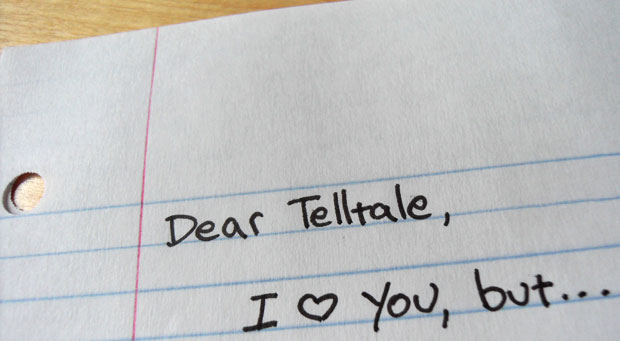 Dear Telltale,
I ♡ you, but...